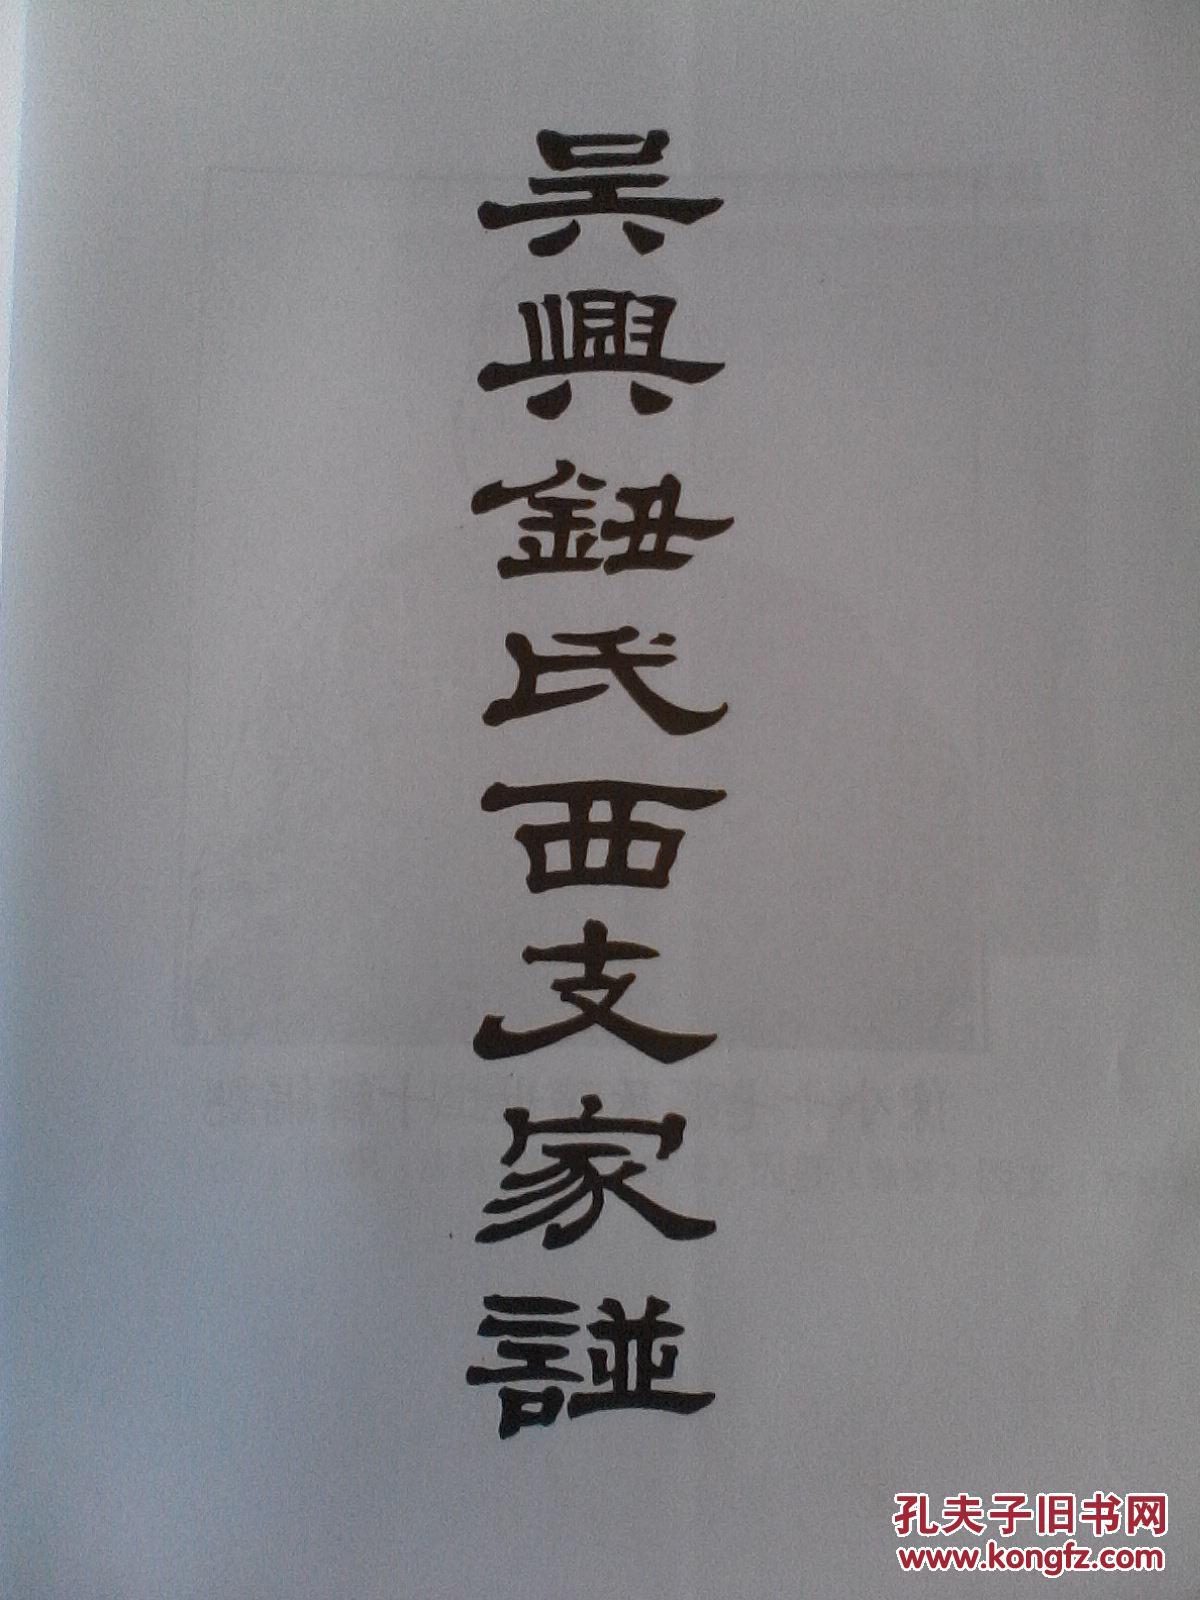 吴興鈕氏西支家諩
孔夫子旧书网
www.kongfz.com